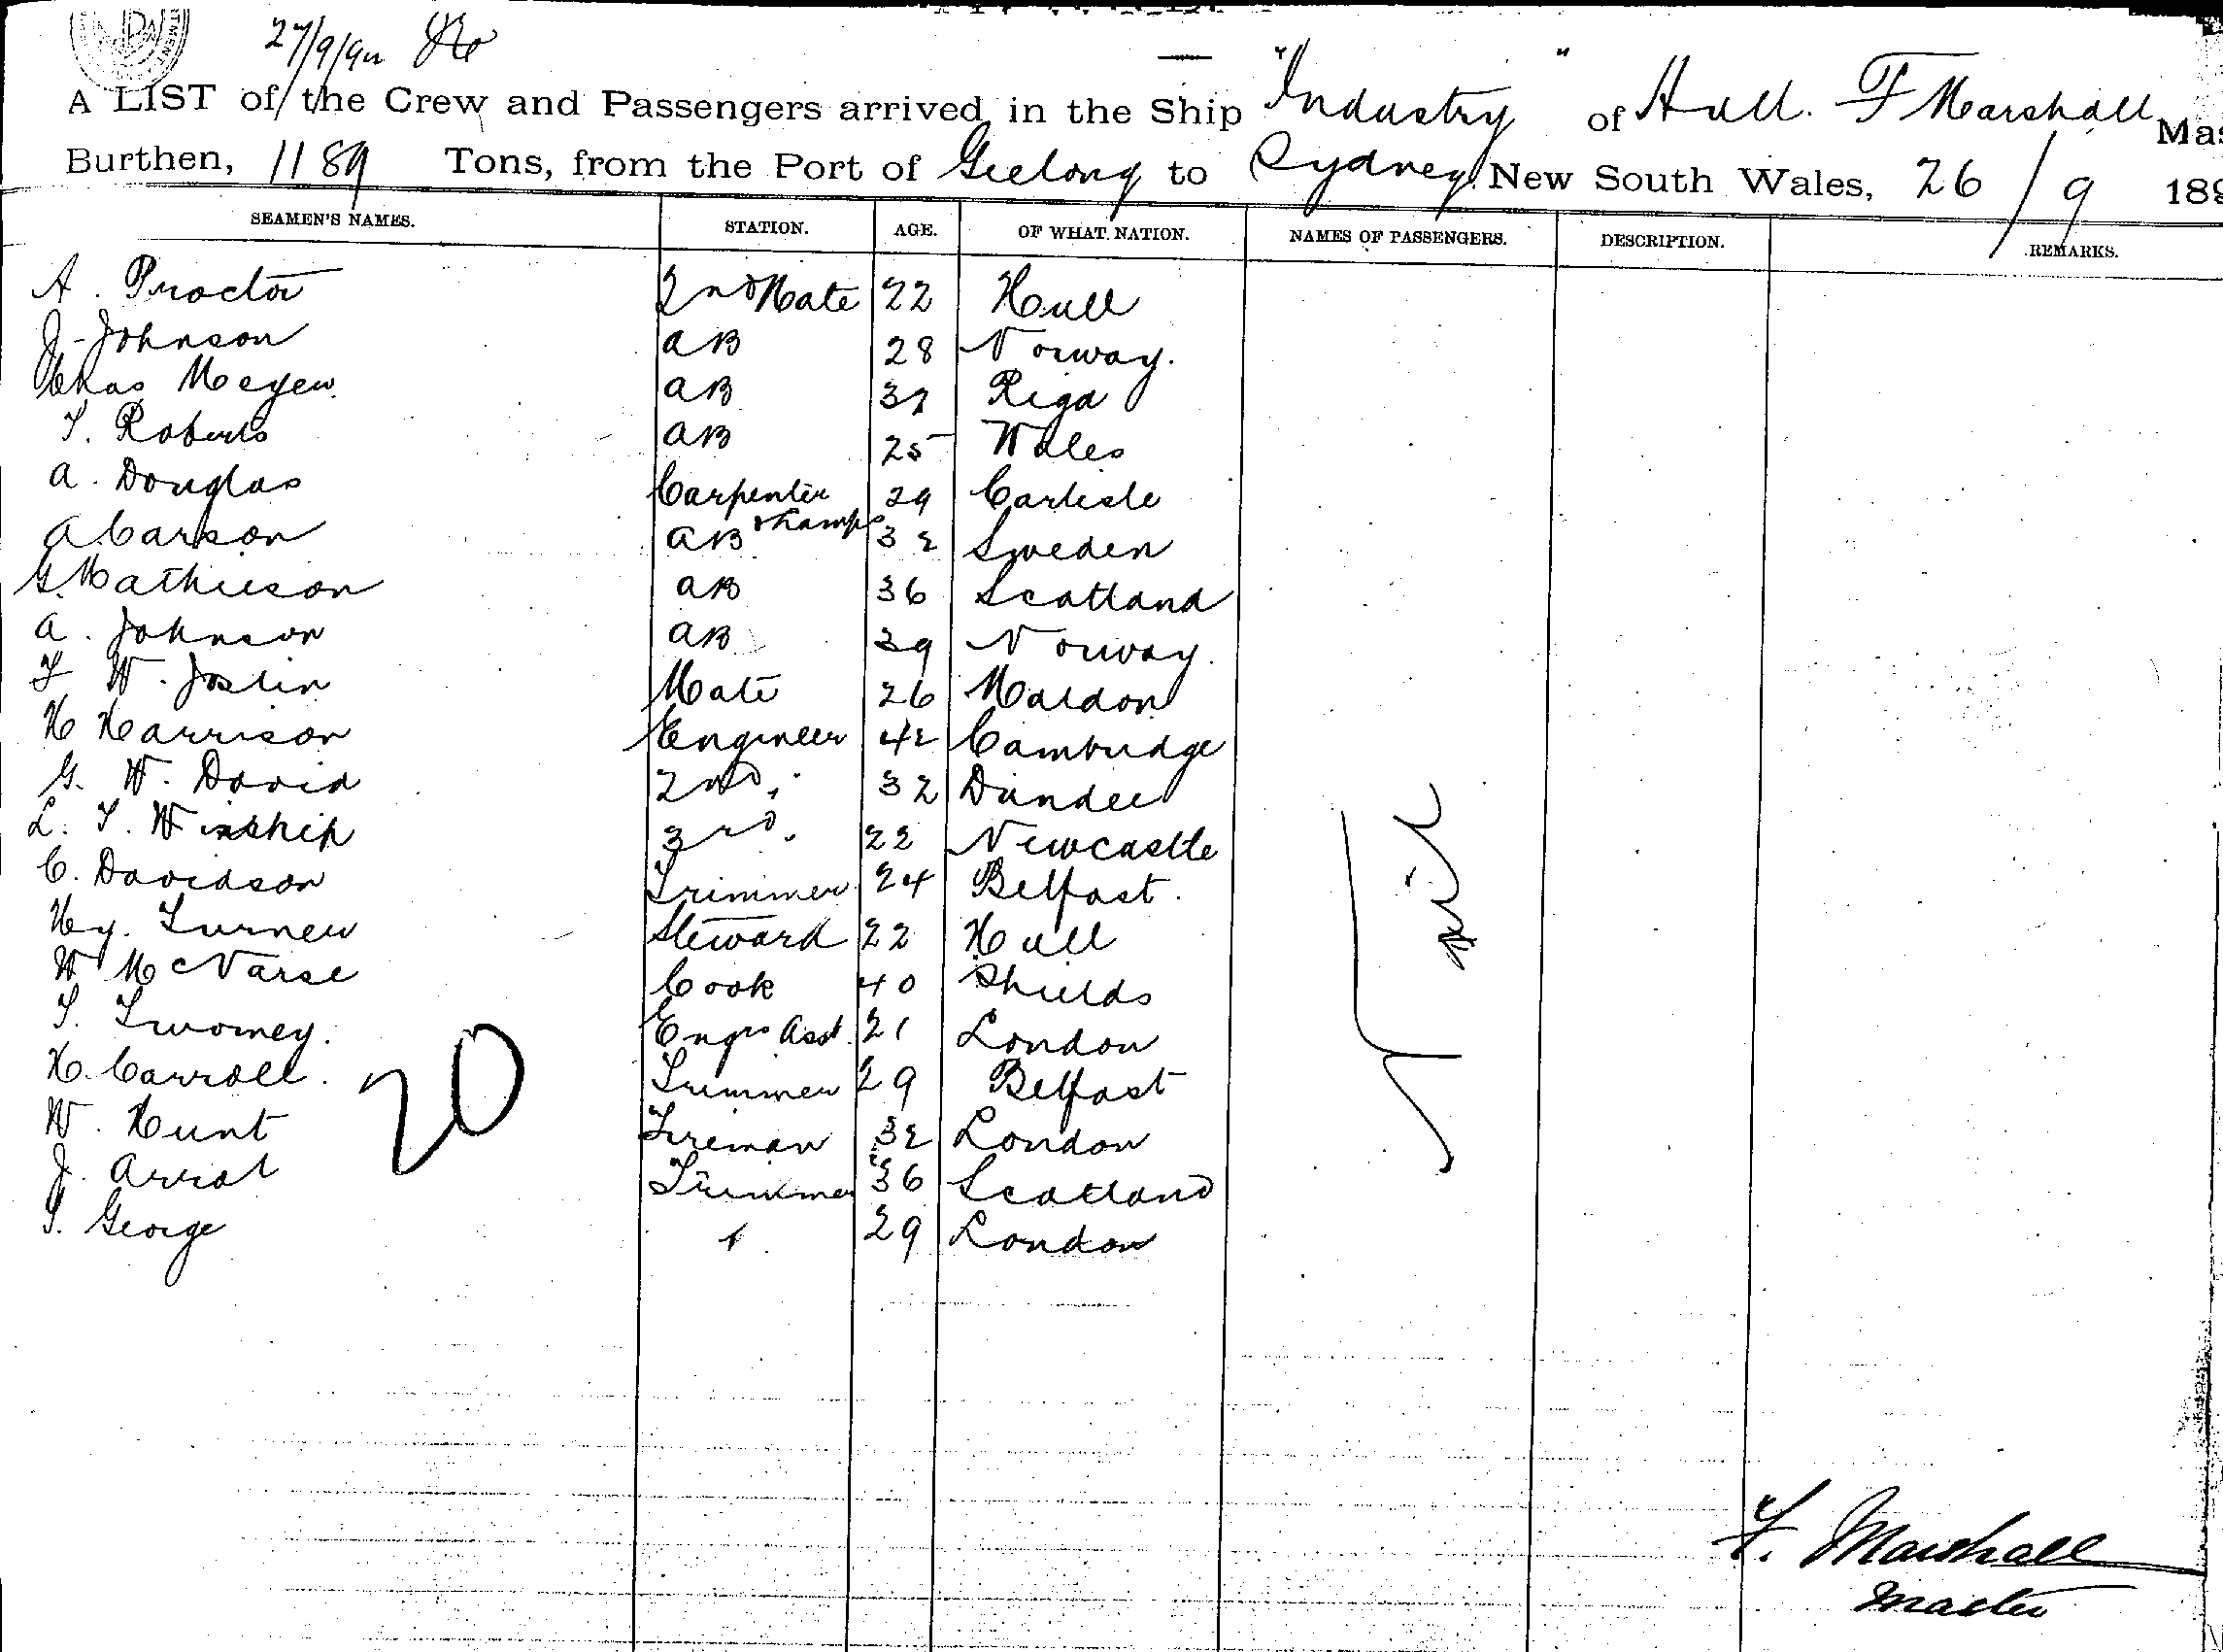 27/9/9
A LIST of the Crew and Passengers arrived in the Ship "Industry" of Hull. F Marshall Mas
Burthen, 1189 Tons, from the Port of Geelong to Sydney New South Wales, 26/9 189
SEAMEN'S NAMES. STATION. AGE. OF WHAT NATION. NAMES OF PASSENGERS. DESCRIPTION. REMARKS.
A. Proctor 2nd Mate 22 Hull
J. Johnson AB 28 Norway.
Chas Meyer AB 37 Riga
T. Roberts AB 25 Wales
A. Douglas Carpenter 29 Carlisle
A Carson AB & Lamps 32 Sweden
G. Mathieson AB 36 Scotland
A. Johnson AB 39 Norway.
F W. Joslin Mate 26 Maldon
H Harrison Engineer 42 Cambridge
G. W. David 2nd " 32 Dundee
L. T. Winship 3rd " 22 Newcastle
C. Davidson Trimmer 24 Belfast.
Hy. Turner Steward 22 Hull
W McVarse Cook 40 Shields
T. Twomey. Engrs Asst. 21 London
H. Carroll. Trimmer 29 Belfast
W. Hunt Fireman 32 London
J. Arrat Trimmer 36 Scotland
T. George " 29 London
20
nil
F. Marshall
Master